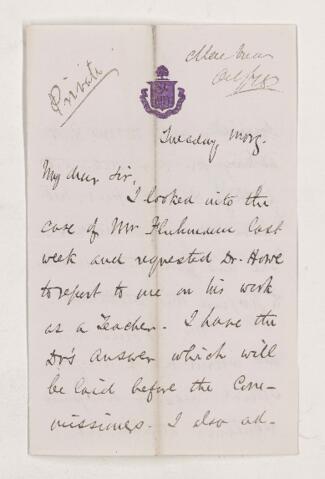 Private
Tuesday, Morg.
My dear Sir,
I looked into the
case of Mr Fluhmann last
week and requested Dr. Howe
to report to me on his work
as a Teacher. I have the
Dr's answer which will
be laid before the Com-
missioners. I also ad-